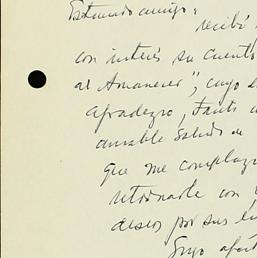 Estimado amigo:
recibí
con interés su cuento
al Amanecer", cuyo e
agradezco, tanto
amable saludo
que me complazco
retornarle con
deseos por sus
Suyo afect